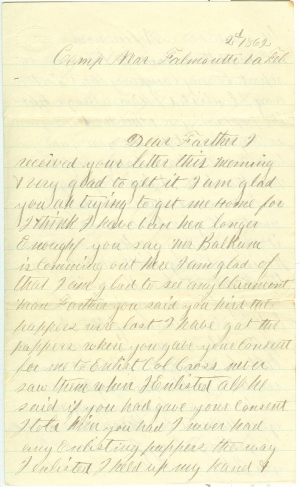 2d 1862
Camp Near Falmouth Va Feb
Dear Farther I
received your letter this morning
& very glad to get it I am glad
you ar trying to get me Home for
I think I have ben hea longer
Enough you say Mr Balkum
is comming out hea I am glad of
that I am glad to see any Claremont
man Farther you said you had the
pappers
lost I have got the
pappers where you gave your consent
for me to Enlist Col Cross never
saw them when I Enlisted all he
said if you had gave your consent
I told him you had I never had
any Enlisting pappers the way
I enlisted I held up my hand &